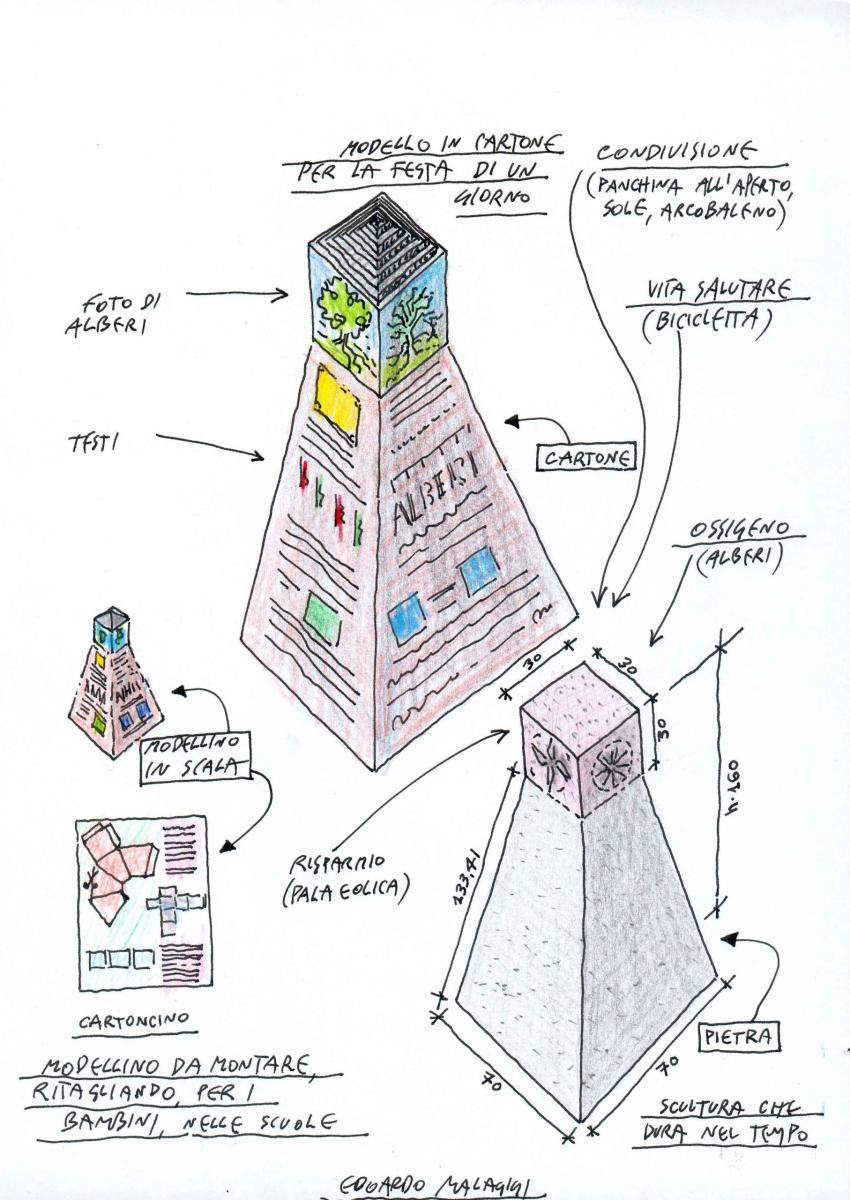 MODELLO IN CARTONE
PER LA FESTA DI UN
GIORNO
CONDIVISIONE
(PANCHINA ALL'APERTO,
SOLE, ARCOBALENO)
VITA SALUTARE
(BICICLETTA)
FOTO DI
ALBERI
TESTI
CARTONE
ALBERI
OSSIGENO
(ALBERI)
30
30
30
h. 160
MODELLINO
IN SCALA
RISPARMIO
(PALA EOLICA)
133,41
CARTONCINO
PIETRA
70
70
MODELLINO DA MONTARE,
RITAGLIANDO, PER I
BAMBINI, NELLE SCUOLE
SCULTURA CHE
DURA NEL TEMPO
EDOARDO MALAGIGI